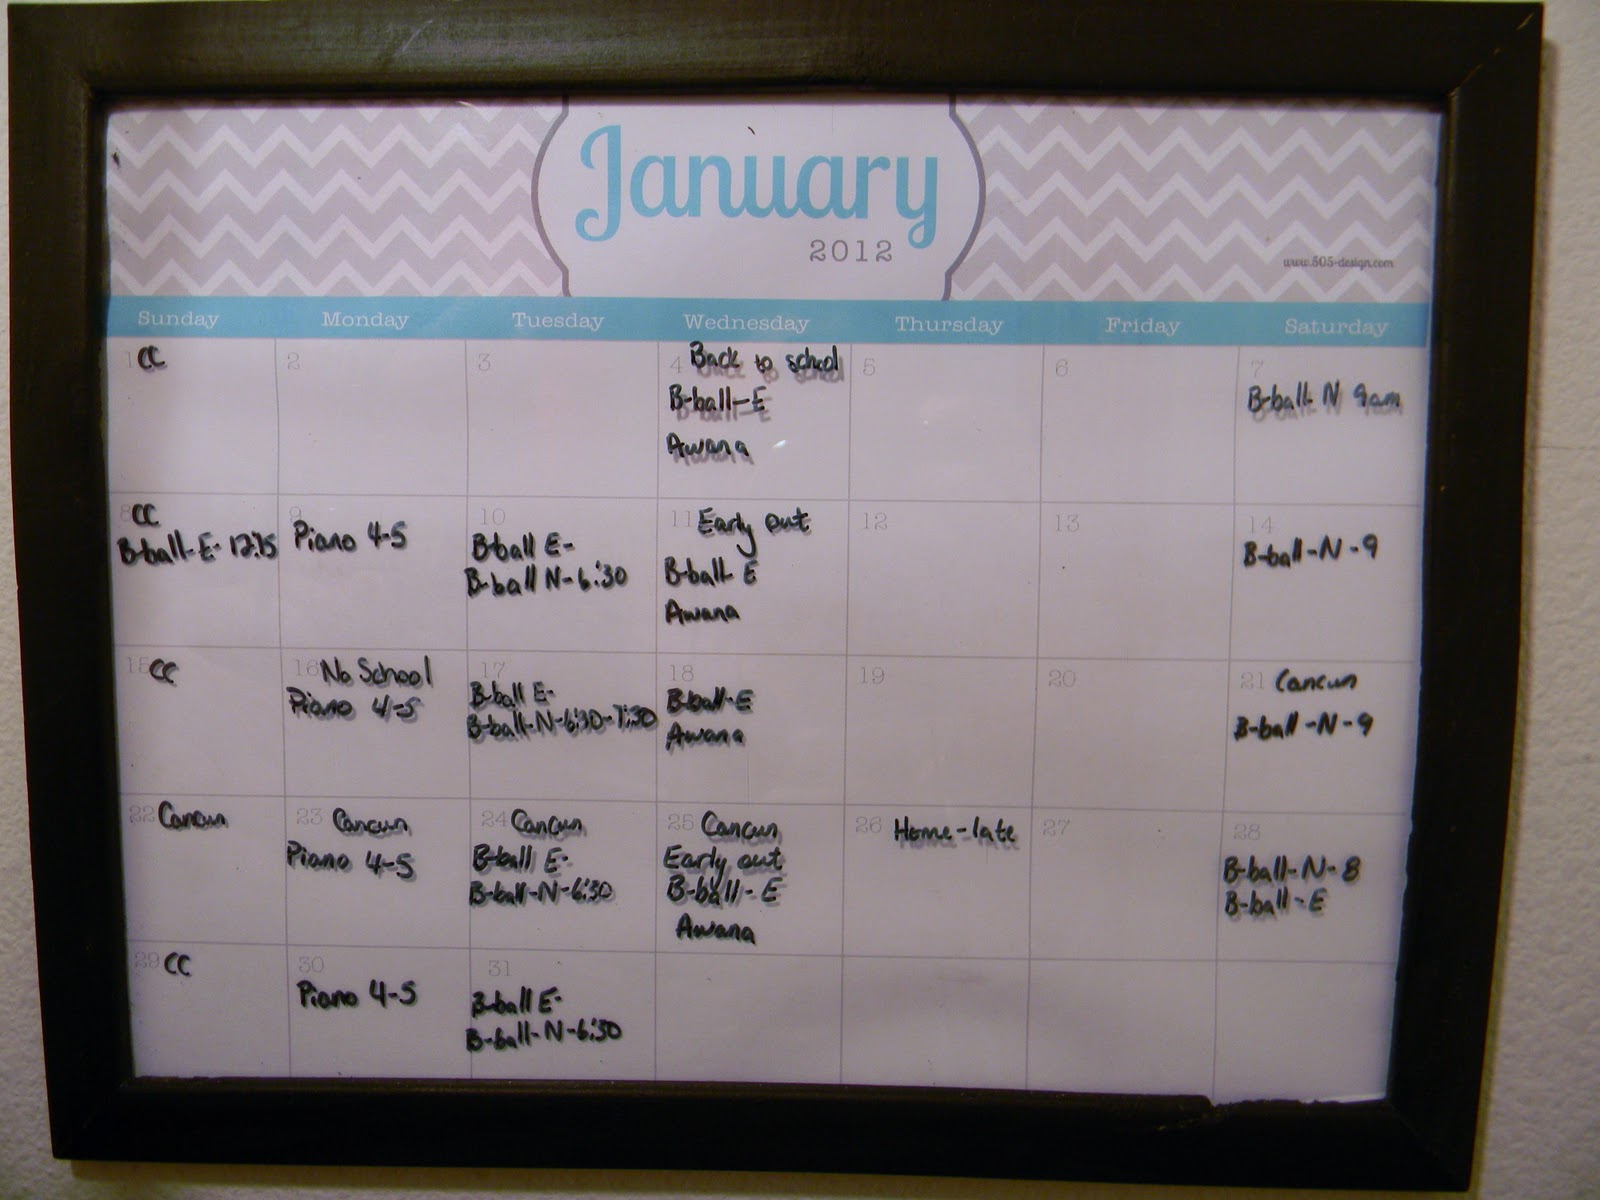 January
2012
www.505-design.com
Sunday Monday Tuesday Wednesday Thursday Friday Saturday
1 CC
2
3
4 Back to school
B-ball-E
Awana
5
6
7
B-ball-N 9am
8 CC
B-ball-E-12:15
9
Piano 4-5
10
B-ball E-
B-ball N-6:30
11 Early out
B-ball E
Awana
12
13
14
B-ball-N-9
15 CC
16 No School
Piano 4-5
17
B-ball E-
B-ball-N-6:30-7:30
18
B-ball-E
Awana
19
20
21 Cancun
B-ball-N-9
22 Cancun
23 Cancun
Piano 4-5
24 Cancun
B-ball E-
B-ball-N-6:30
25 Cancun
Early out
B-ball-E
Awana
26 Home-late
27
28
B-ball-N-8
B-ball-E
29 CC
30
Piano 4-5
31
B-ball E-
B-ball-N-6:30